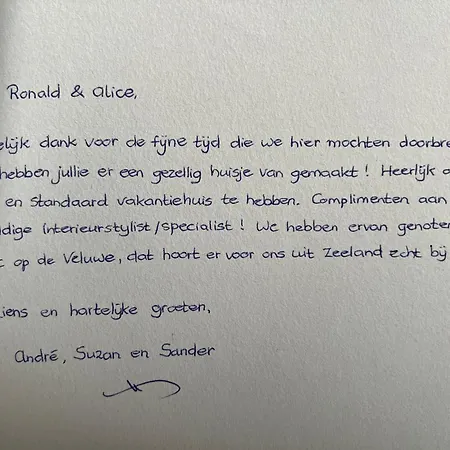 Ronald & Alice,
elijk dank voor de fijne tijd die we hier mochten doorbre
hebben jullie er een gezellig huisje van gemaakt! Heerlijk o
en standaard vakantiehuis te hebben. Complimenten aan
dige interieurstylist/specialist! We hebben ervan genoten
op de Veluwe, dat hoort er voor ons uit Zeeland echt bij
iens en hartelijke groeten,
André, Suzan en Sander